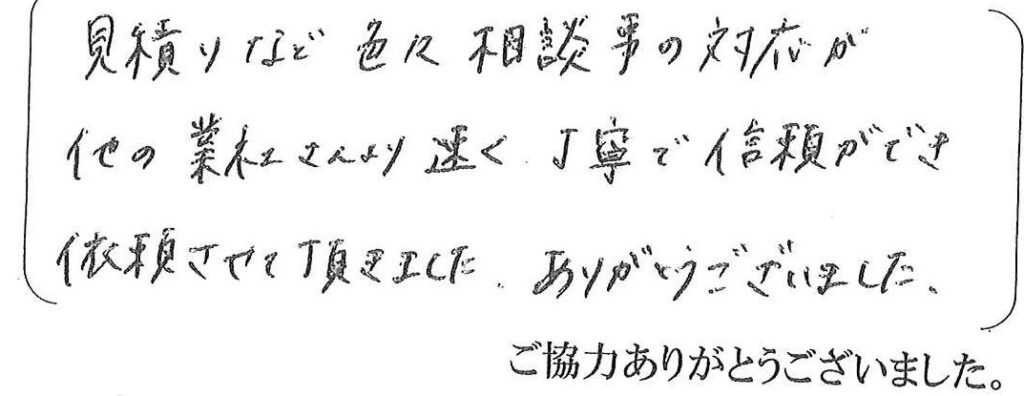 見積りなど色々相談事の対応が
他の業社さんより速く、丁寧で信頼ができ
依頼させて頂きました。ありがとうございました。
ご協力ありがとうございました。